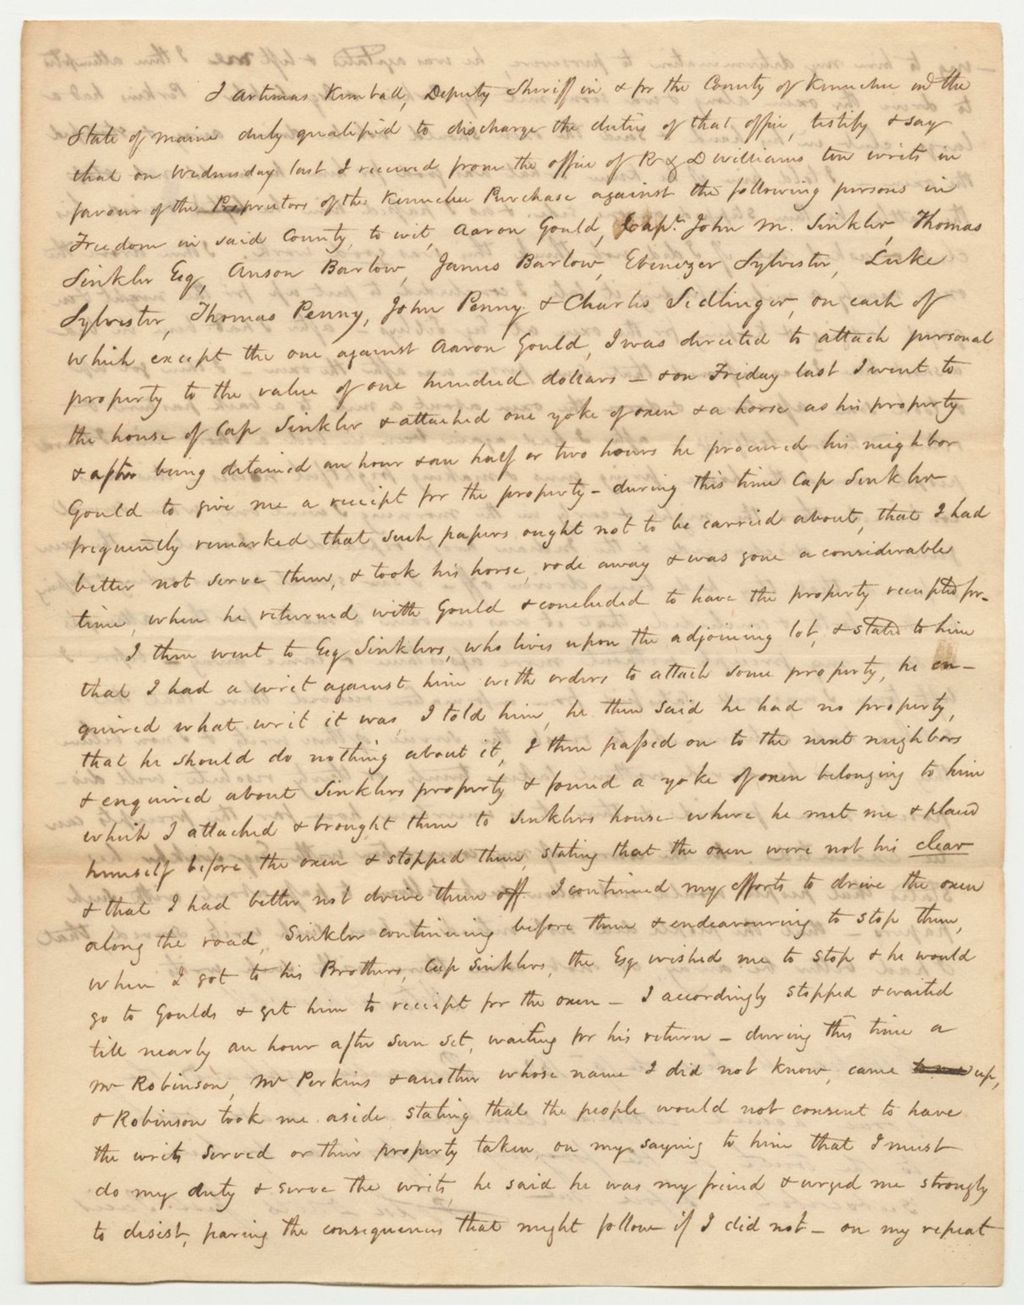 I Artemas Kimball, Deputy Sheriff in & for the County of Kennebec and the
State of maine duly qualified to discharge the duties of that office, testify & say
that on Wednesday last I received from the office of R & D Williams ten writs in
favour of the Proprietors of the Kennebec Purchase against the following persons in
Freedom in said County, to wit, Aaron Gould, Capt. John M. Sinkler, Thomas
Sinkler Esq, Anson Barlow, James Barlow, Ebenezer Sylvester, Luke
Sylvester, Thomas Penny, John Penny & Charles Sidlinger, on each of
which except the one against Aaron Gould, I was directed to attach personal
property to the value of one hundred dollars — & on Friday last I went to
the house of Cap Sinkler & attached one yoke of oxen & a horse as his property
& after being detained an hour & an half or two hours he procured his neighbor
Gould to give me a receipt for the property — during this time Cap Sinkler
frequently remarked that such papers ought not to be carried about, that I had
better not serve them, & took his horse, rode away & was gone a considerable
time, when he returned with Gould & concluded to have the property receipted for —
I then went to Esq Sinklers, who lives upon the adjoining lot, & stated to him
that I had a writ against him with orders to attach some property, he en-
quired what writ it was, I told him, he then said he had no property,
that he should do nothing about it, I then passed on to the next neighbors
& enquired about Sinklers property & found a yoke of oxen belonging to him
which I attached & brought them to Sinklers house where he met me & placed
himself before the oxen & stopped them stating that the oxen were not his clear
& that I had better not drive them off I continued my efforts to drive the oxen
along the road, Sinkler continuing before them & endeavouring to stop them,
when I got to his Brothers, Cap Sinklers, the Esq wished me to stop & he would
go to Goulds & get him to receipt for the oxen — I accordingly stopped & waited
till nearly an hour after sun set, waiting for his return — during this time a
Mr Robinson, Mr Perkins & another whose name I did not know, came up,
& Robinson took me aside stating that the people would not consent to have
the writs served or their property taken, on my saying to him that I must
do my duty & serve the writs, he said he was my friend & urged me strongly
to desist, fearing the consequences that might follow if I did not — on my repeat